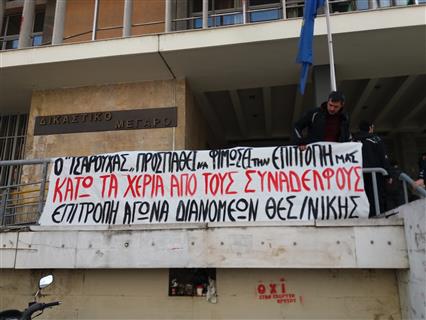 ΔΙΚΑΣΤΙΚΟ
ΜΕΓΑΡΟ
Ο "ΤΣΑΡΟΥΧΑΣ" ΠΡΟΣΠΑΘΕΙ ΝΑ ΦΙΜΩΣΕΙ ΤΗΝ ΕΠΙΤΡΟΠΗ ΜΑΣ
ΚΑΤΩ ΤΑ ΧΕΡΙΑ ΑΠΟ ΤΟΥΣ ΣΥΝΑΔΕΛΦΟΥΣ
ΕΠΙΤΡΟΠΗ ΑΓΩΝΑ ΔΙΑΝΟΜΕΩΝ ΘΕΣ/ΝΙΚΗΣ
ΟΧΙ
ΣΤΗΝ ΕΞΟΡΥΞΗ
ΧΡΥΣΟΥ